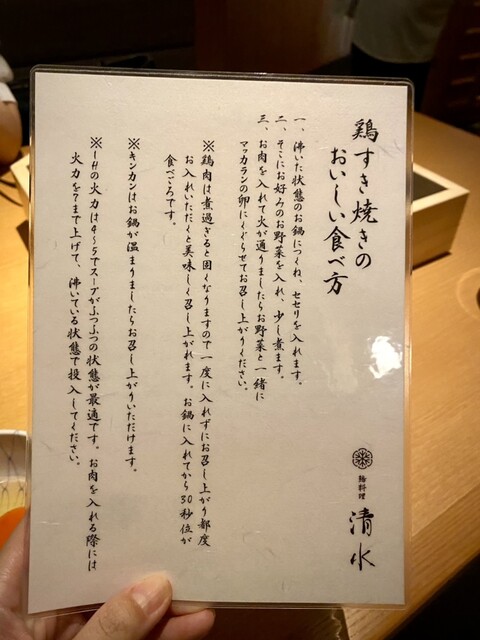 鶏すき焼きの
おいしい食べ方
一、沸いた状態のお鍋につくね、セセリを入れます。
二、そこにお好みのお野菜を入れ、少し煮ます。
三、お肉を入れて火が通りましたらお野菜と一緒に
マッカランの卵にくぐらせてお召し上がりください。
※鶏肉は煮過ぎると固くなりますので一度に入れずにお召し上がり都度
お入れいただくと美味しく召し上がれます。お鍋に入れてから30秒位が
食べごろです。
※キンカンはお鍋が温まりましたらお召し上がりいただけます。
※IHの火力は4~5でスープがふつふつの状態が最適です。お肉を入れる際には
火力を7まで上げて、沸いている状態で投入してください。
膳料理
清水